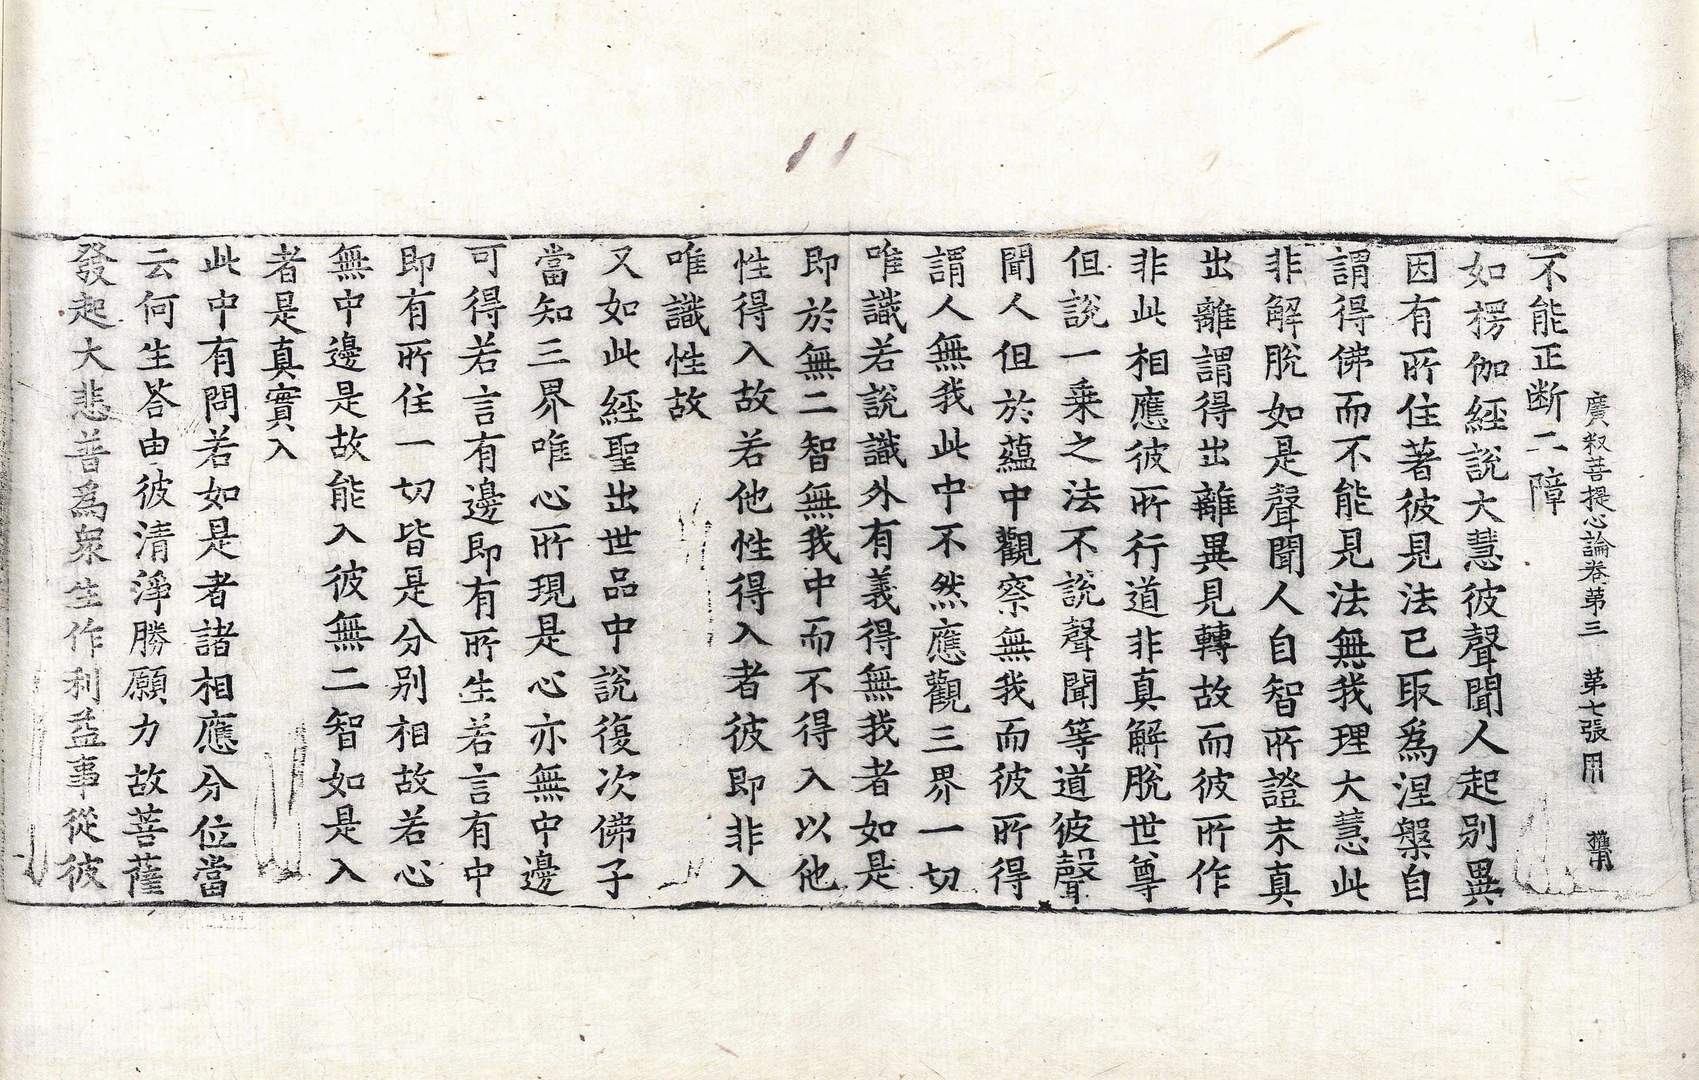 11
廣釈菩提心論卷第三 第七張
不能正断二障
如楞伽經說大慧彼聲聞人起别異
因有所住著彼見法已取為涅槃自
謂得佛而不能見法無我理大慧此
非解脫如是聲聞人自智所證未真
出離謂得出離異見轉故而彼所作
非此相應彼所行道非真解脫世尊
但說一乗之法不說聲聞等道彼聲
聞人但於蘊中觀察無我而彼所得
謂人無我此中不然應觀三界一切
唯識若說識外有義得無我者如是
即於無二智無我中而不得入以他
性得入故若他性得入者彼即非入
唯識性故
又如此經聖出世品中說復次佛子
當知三界唯心所現是心亦無中邊
可得若言有邊即有所生若言有中
即有所住一切皆是分别相故若心
無中邊是故能入彼無二智如是入
者是真實入
此中有問若如是者諸相應分位當
云何生荅由彼清淨勝願力故菩薩
發起大悲普為衆生作利益事從彼